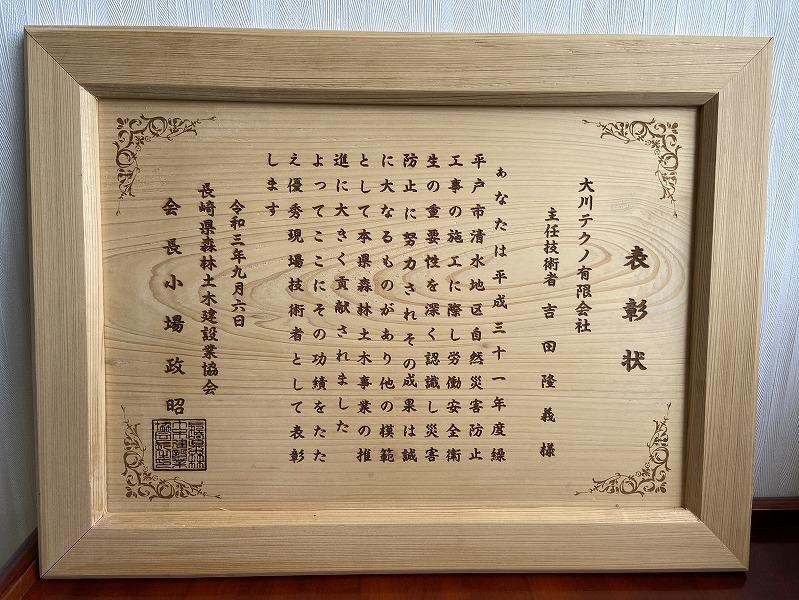 表彰状
大川テクノ有限会社
主任技術者 吉田隆義様
あなたは平成三十一年度繰
平戸市清水地区自然災害防止
工事の施工に際し労働安全衛
生の重要性を深く認識し災害
防止に努力されその成果は誠
に大なるものがあり他の模範
として本県森林土木事業の推
進に大きく貢献されました
よってここにその功績をたた
え優秀現場技術者として表彰
します
令和三年九月六日
長崎県森林土木建設業協会
会長小場政昭